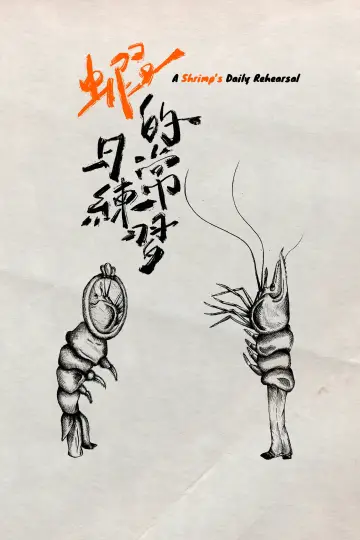 蝦
A Shrimp's Daily Rehearsal
的日常練習